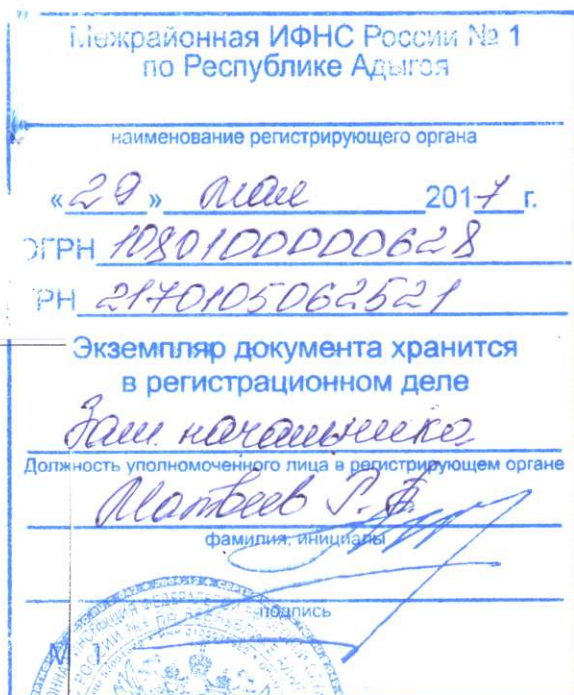 Межрайонная ИФНС России № 1
по Республике Адыгея
наименование регистрирующего органа
«29» мая 2017 г.
ОГРН 1080100000628
ГРН 2170105062521
Экземпляр документа хранится
в регистрационном деле
Зам. начальника
Должность уполномоченного лица в регистрирующем органе
Матвеев Р.В.
фамилия, инициалы
подпись
М